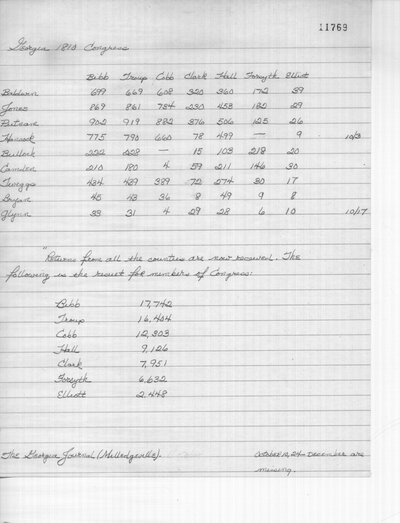 11769
Georgia 1810 Congress
Bibb Troup Cobb Clark Hall Forsyth Elliott
Baldwin 699 669 608 320 360 172 39
Jones 869 861 784 230 453 182 29
Putnam 902 919 882 376 506 125 26
Hancock 775 790 660 78 499 — 9 10/3
Bulloch 222 228 — 15 103 218 20
Camden 210 180 4 59 211 146 30
Twiggs 434 439 389 72 274 30 17
Bryan 45 43 36 8 49 9 8
Glynn 33 31 4 29 28 6 10 10/17
"Returns from all the counties are now received. The
following is the result for members of Congress:
Bibb 17,742
Troup 16,404
Cobb 12,303
Hall 9,126
Clark 7,951
Forsyth 6,632
Elliott 2,448
The Georgia Journal (Milledgeville). October 10, 24 - December are
missing.